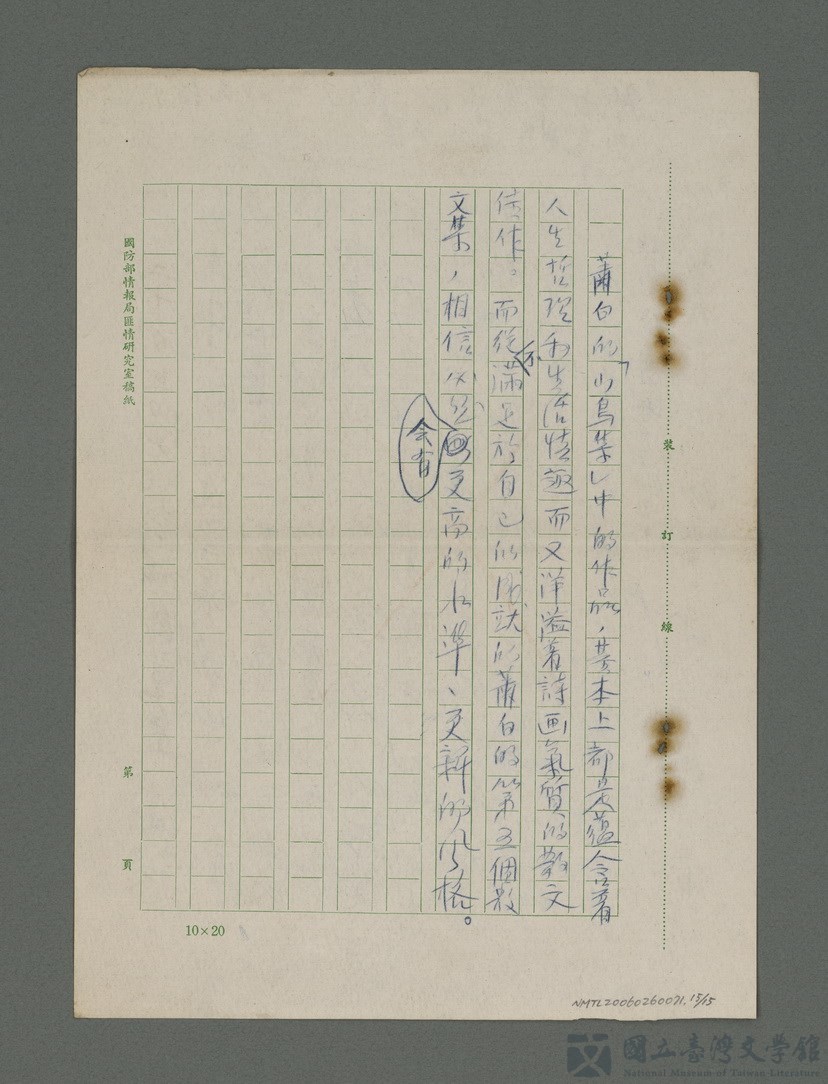 裝訂線
蕭白的「山鳥集」中的作品，基本上都是蘊含著
人生哲理和生活情趣而又洋溢著詩画氣質的散文
佳作。而從不滿足於自己的成就的蕭白的第五個散
文集，相信必然会有更高的水準、更新的风格。
國防部情報局匪情研究室稿紙
第 頁
10×20
NMTL20060260071.15/15
國立臺灣文學館
National Museum of Taiwan Literature